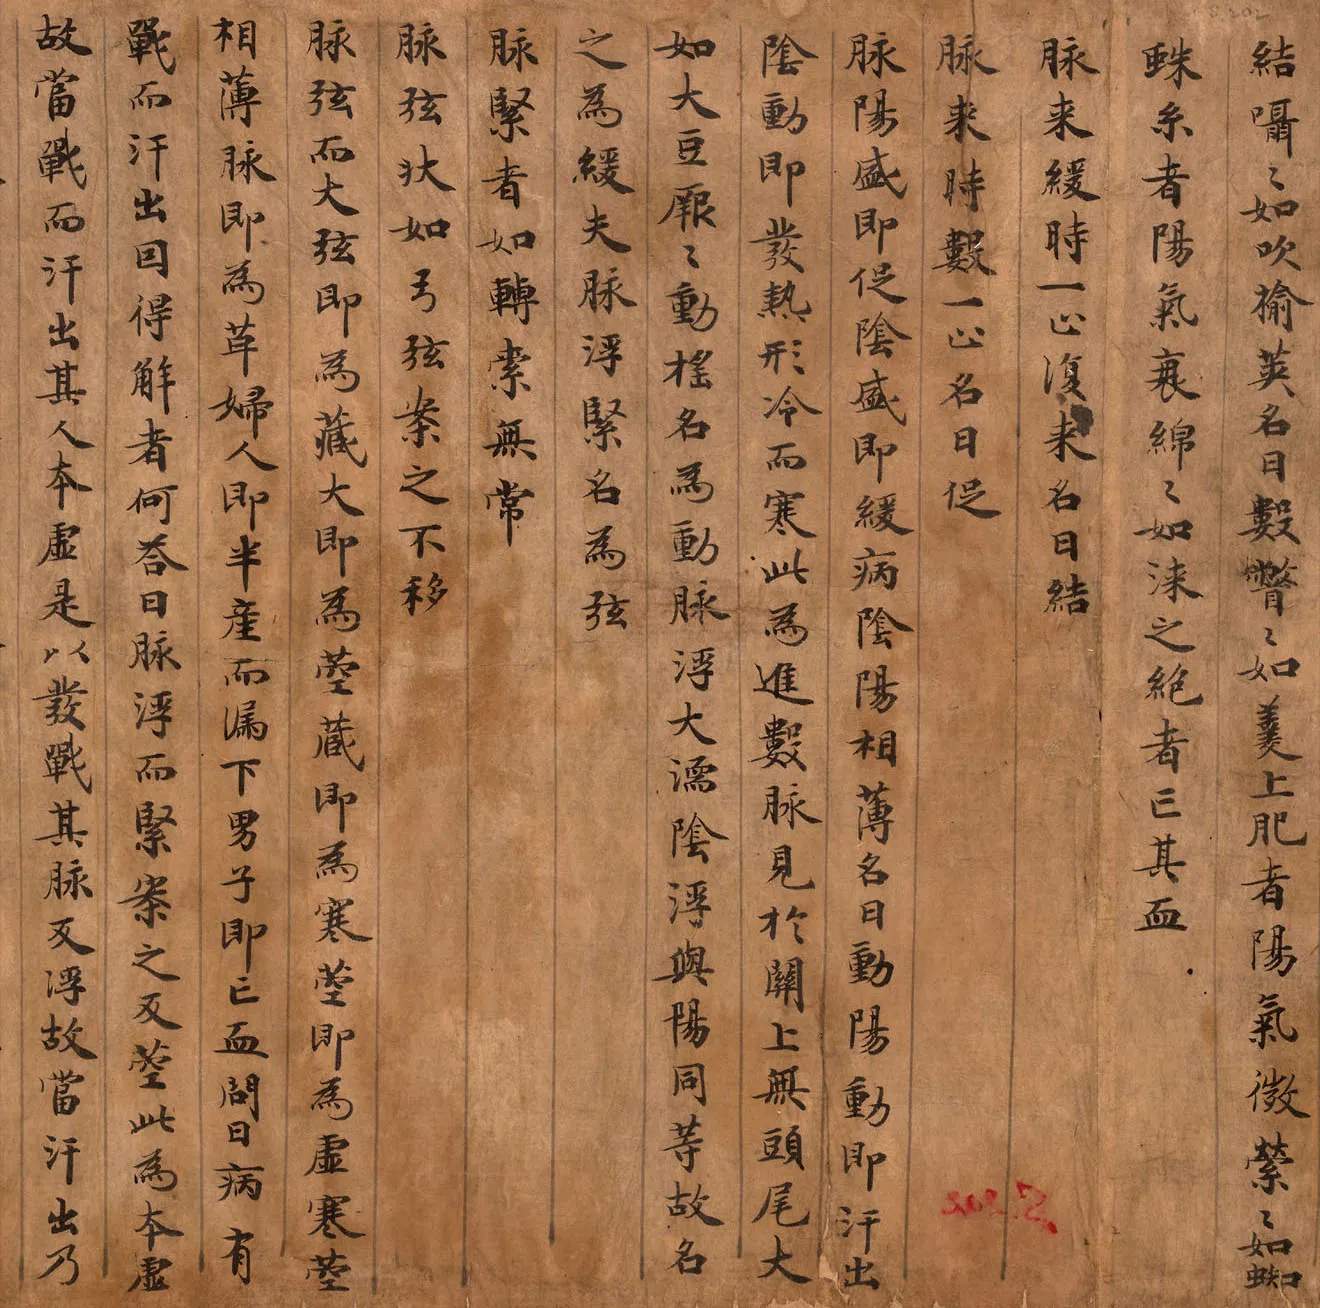 結囁〻如吹榆莢名曰數瞥〻如羹上肥者陽氣微縈〻如蜘
蛛糸者陽氣衰綿〻如涑之絶者亡其血
脉来緩時一止復来名曰結
脉来時數一止名曰促
脉陽盛即促陰盛即緩病陰陽相薄名曰動陽動即汗出
陰動即發熱形冷而寒此為進數脉見於關上無頭尾大
如大豆厥〻動搖名為動脉浮大濡陰浮與陽同等故名
之為緩夫脉浮緊名為弦
脉緊者如轉索無常
脉弦狀如弓弦案之不移
脉弦而大弦即為藏大即為莖藏即為寒莖即為虛寒莖
相薄脉即為革婦人即半産而漏下男子即亡血問曰病有
戰而汗出因得解者何荅曰脉浮而緊案之反莖此為本虛
故當戰而汗出其人本虛是以發戰其脉反浮故當汗出乃
S.202